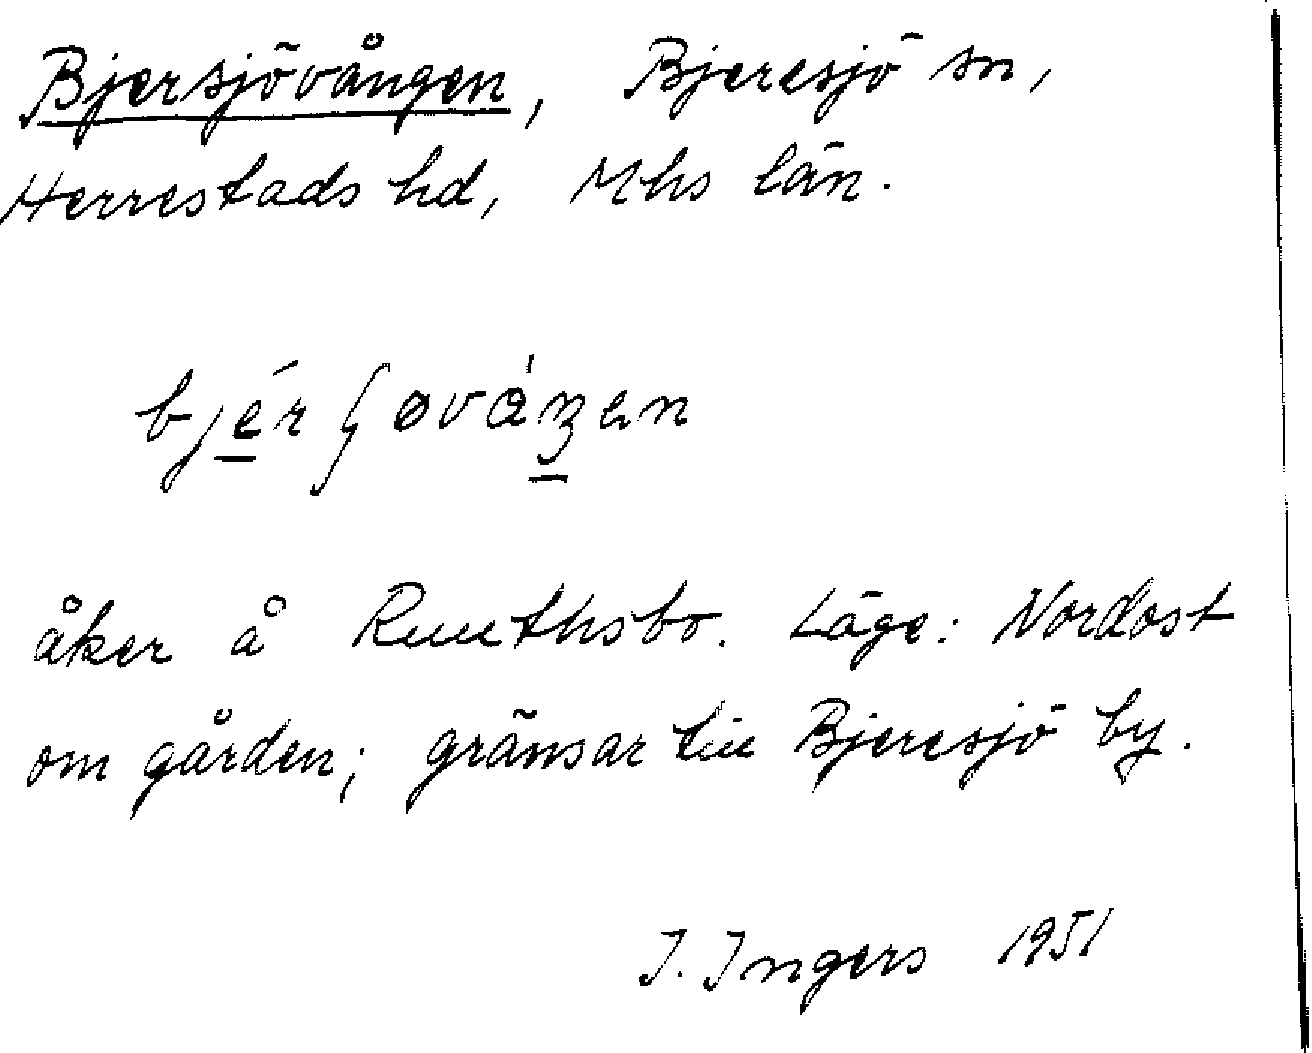 Bjersjövången, Bjeresjö sn,
Herrestads hd, Mhs län.
åker å Ruuthsbo. Läge: Nordost
om gården; gränsar till Bjeresjö by.
I. Ingers 1951